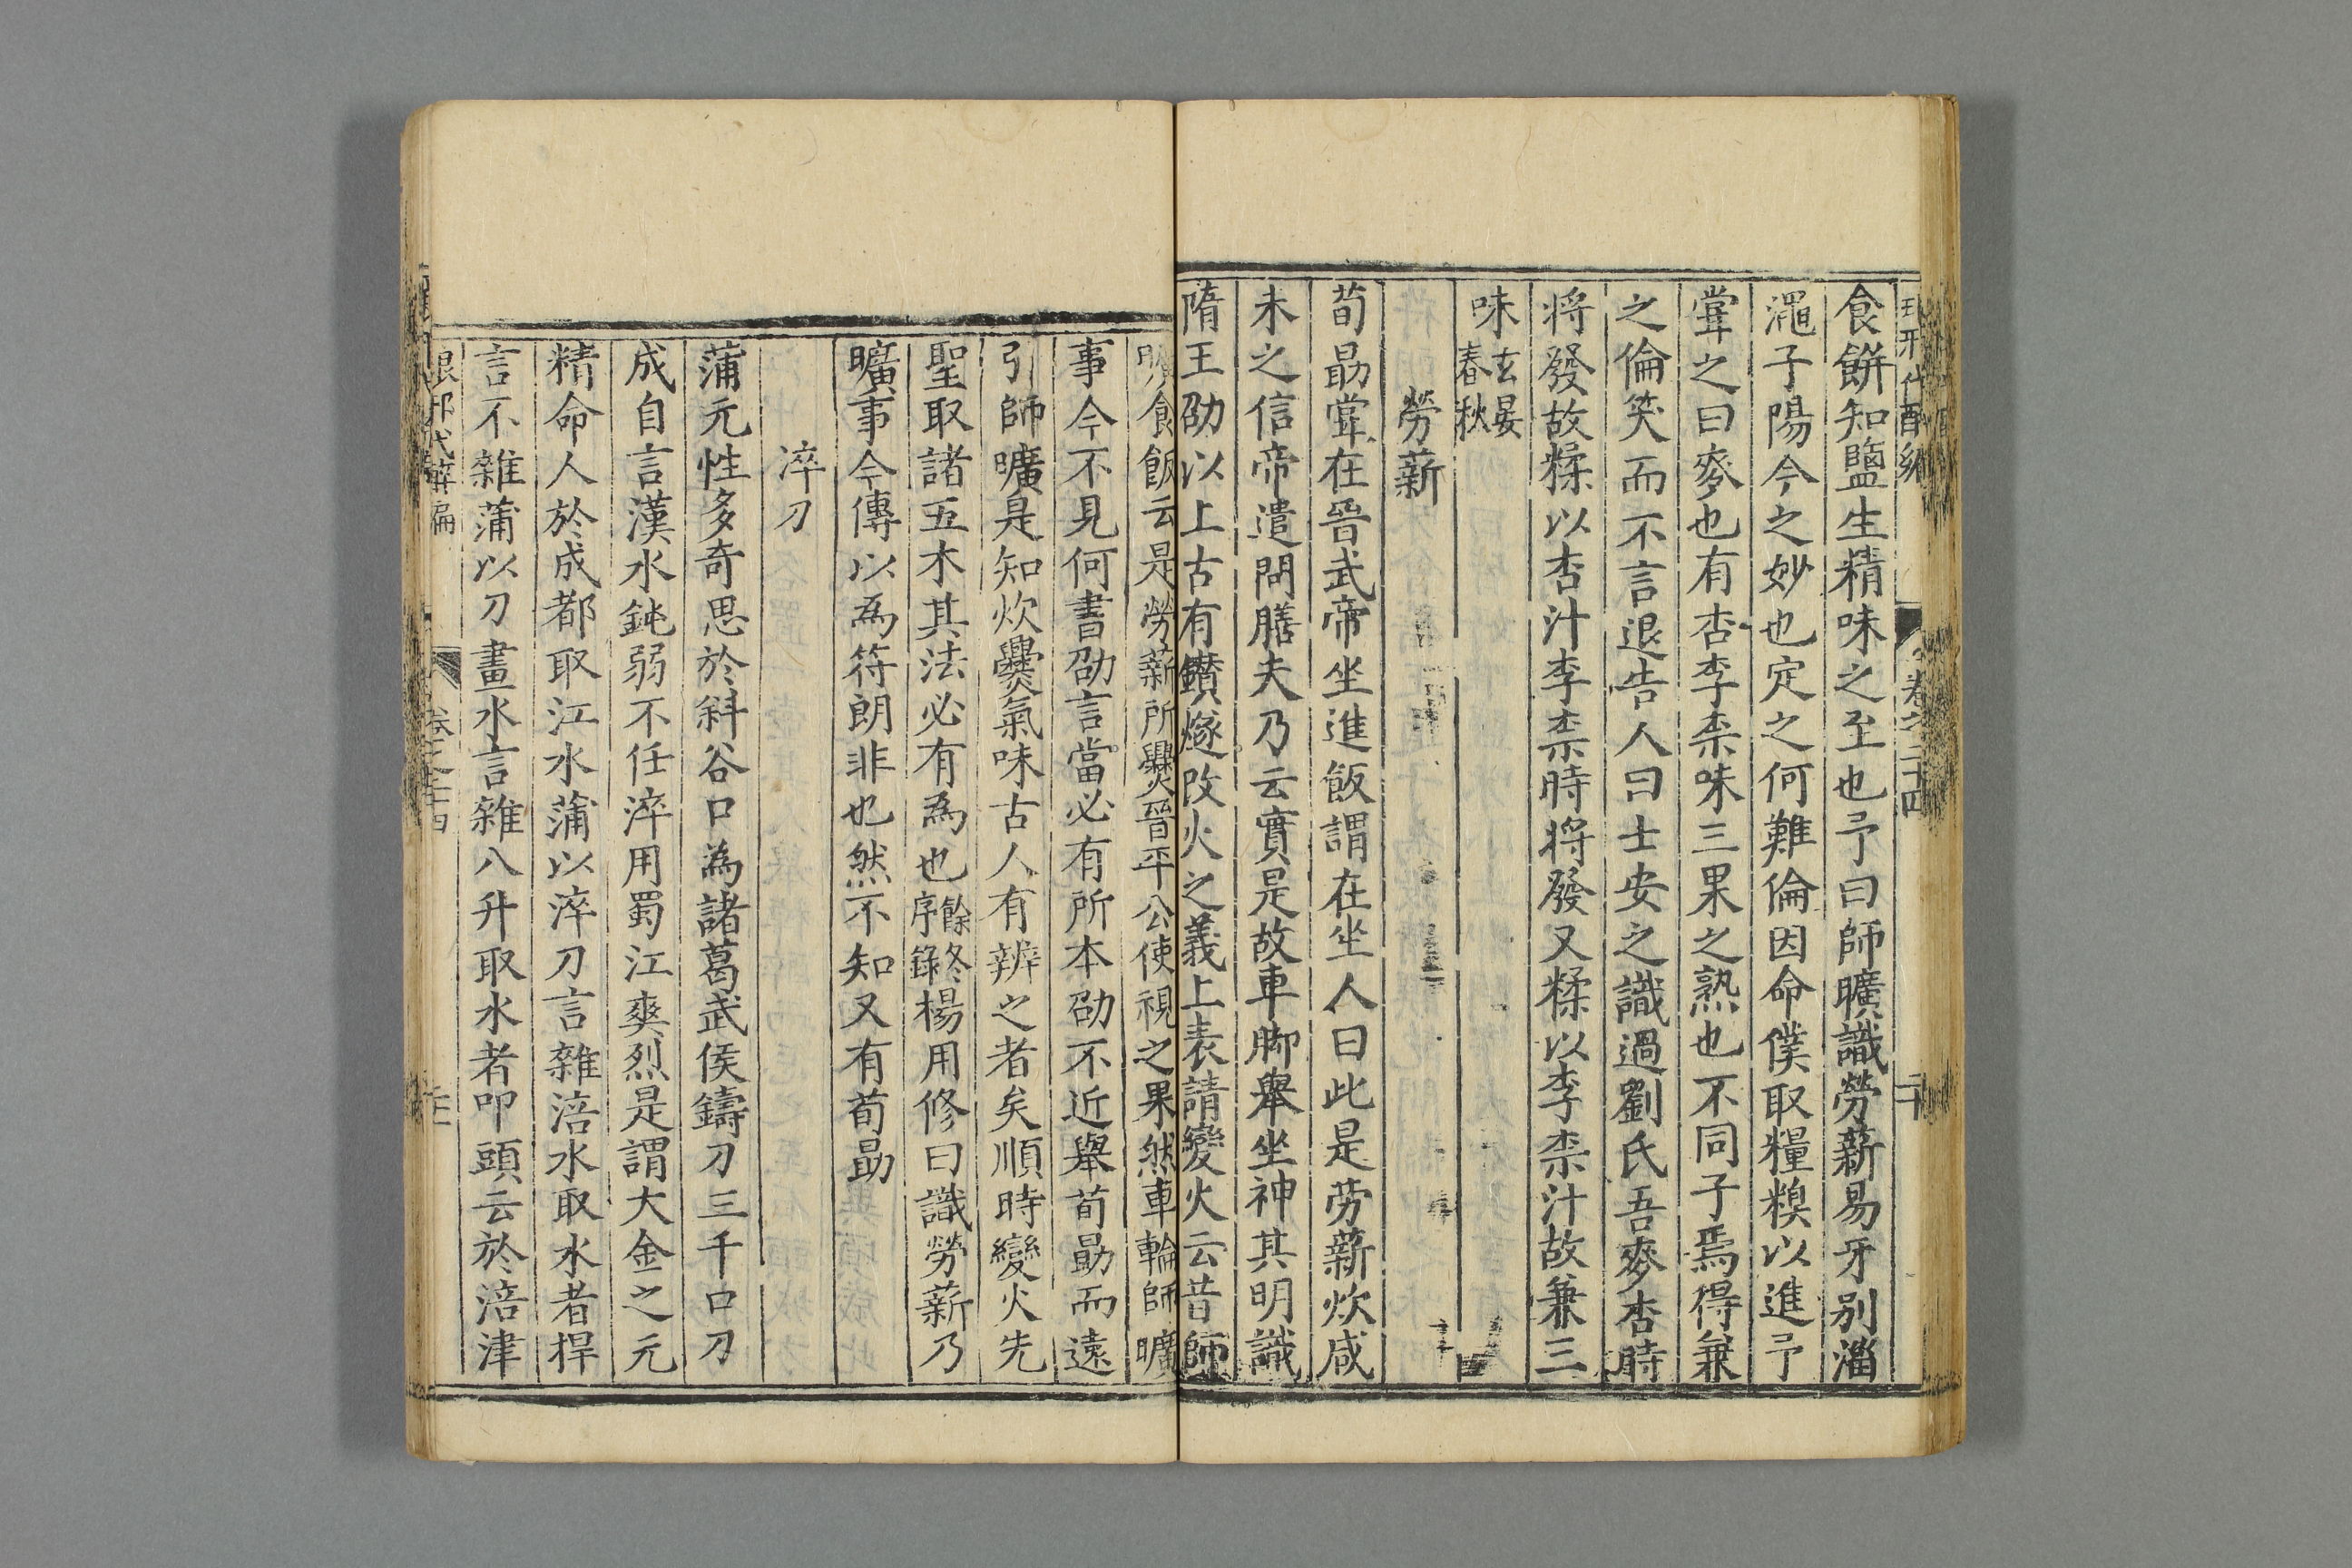 食餅知鹽生精味之至也予曰師曠識勞薪易牙别淄
澠子陽今之妙也定之何難倫因命僕取糧糗以進予
甞之曰麥也有杏李柰味三果之熟也不同子焉得兼
之倫笑而不言退告人曰士安之識過劉氏吾麥杏時
将發故糅以杏汁李柰時将發又糅以李柰汁故兼三
味玄晏春秋
勞薪
荀勗甞在晉武帝坐進飯謂在坐人曰此是勞薪炊咸
未之信帝遣問膳夫乃云實是故車脚舉坐神其明識
隋王劭以上古有鑚燧改火之義上表請變火云昔師
曠食飯云是勞薪所爨晉平公使視之果然車輪師曠
事今不見何書劭言當必有所本劭不近舉荀勗而遠
引師曠是知炊爨氣味古人有辨之者矣順時變火先
聖取諸五木其法必有為也餘冬序錄楊用修曰識勞薪乃
曠事今傳以為符朗非也然不知又有荀勗
淬刀
蒲元性多奇思於斜谷口為諸葛武侯鑄刀三千口刀
成自言漢水鈍弱不任淬用蜀江爽烈是謂大金之元
精命人於成都取江水蒲以淬刀言雜涪水取水者捍
言不雜蒲以刀畫水言雜八升取水者叩頭云於涪津